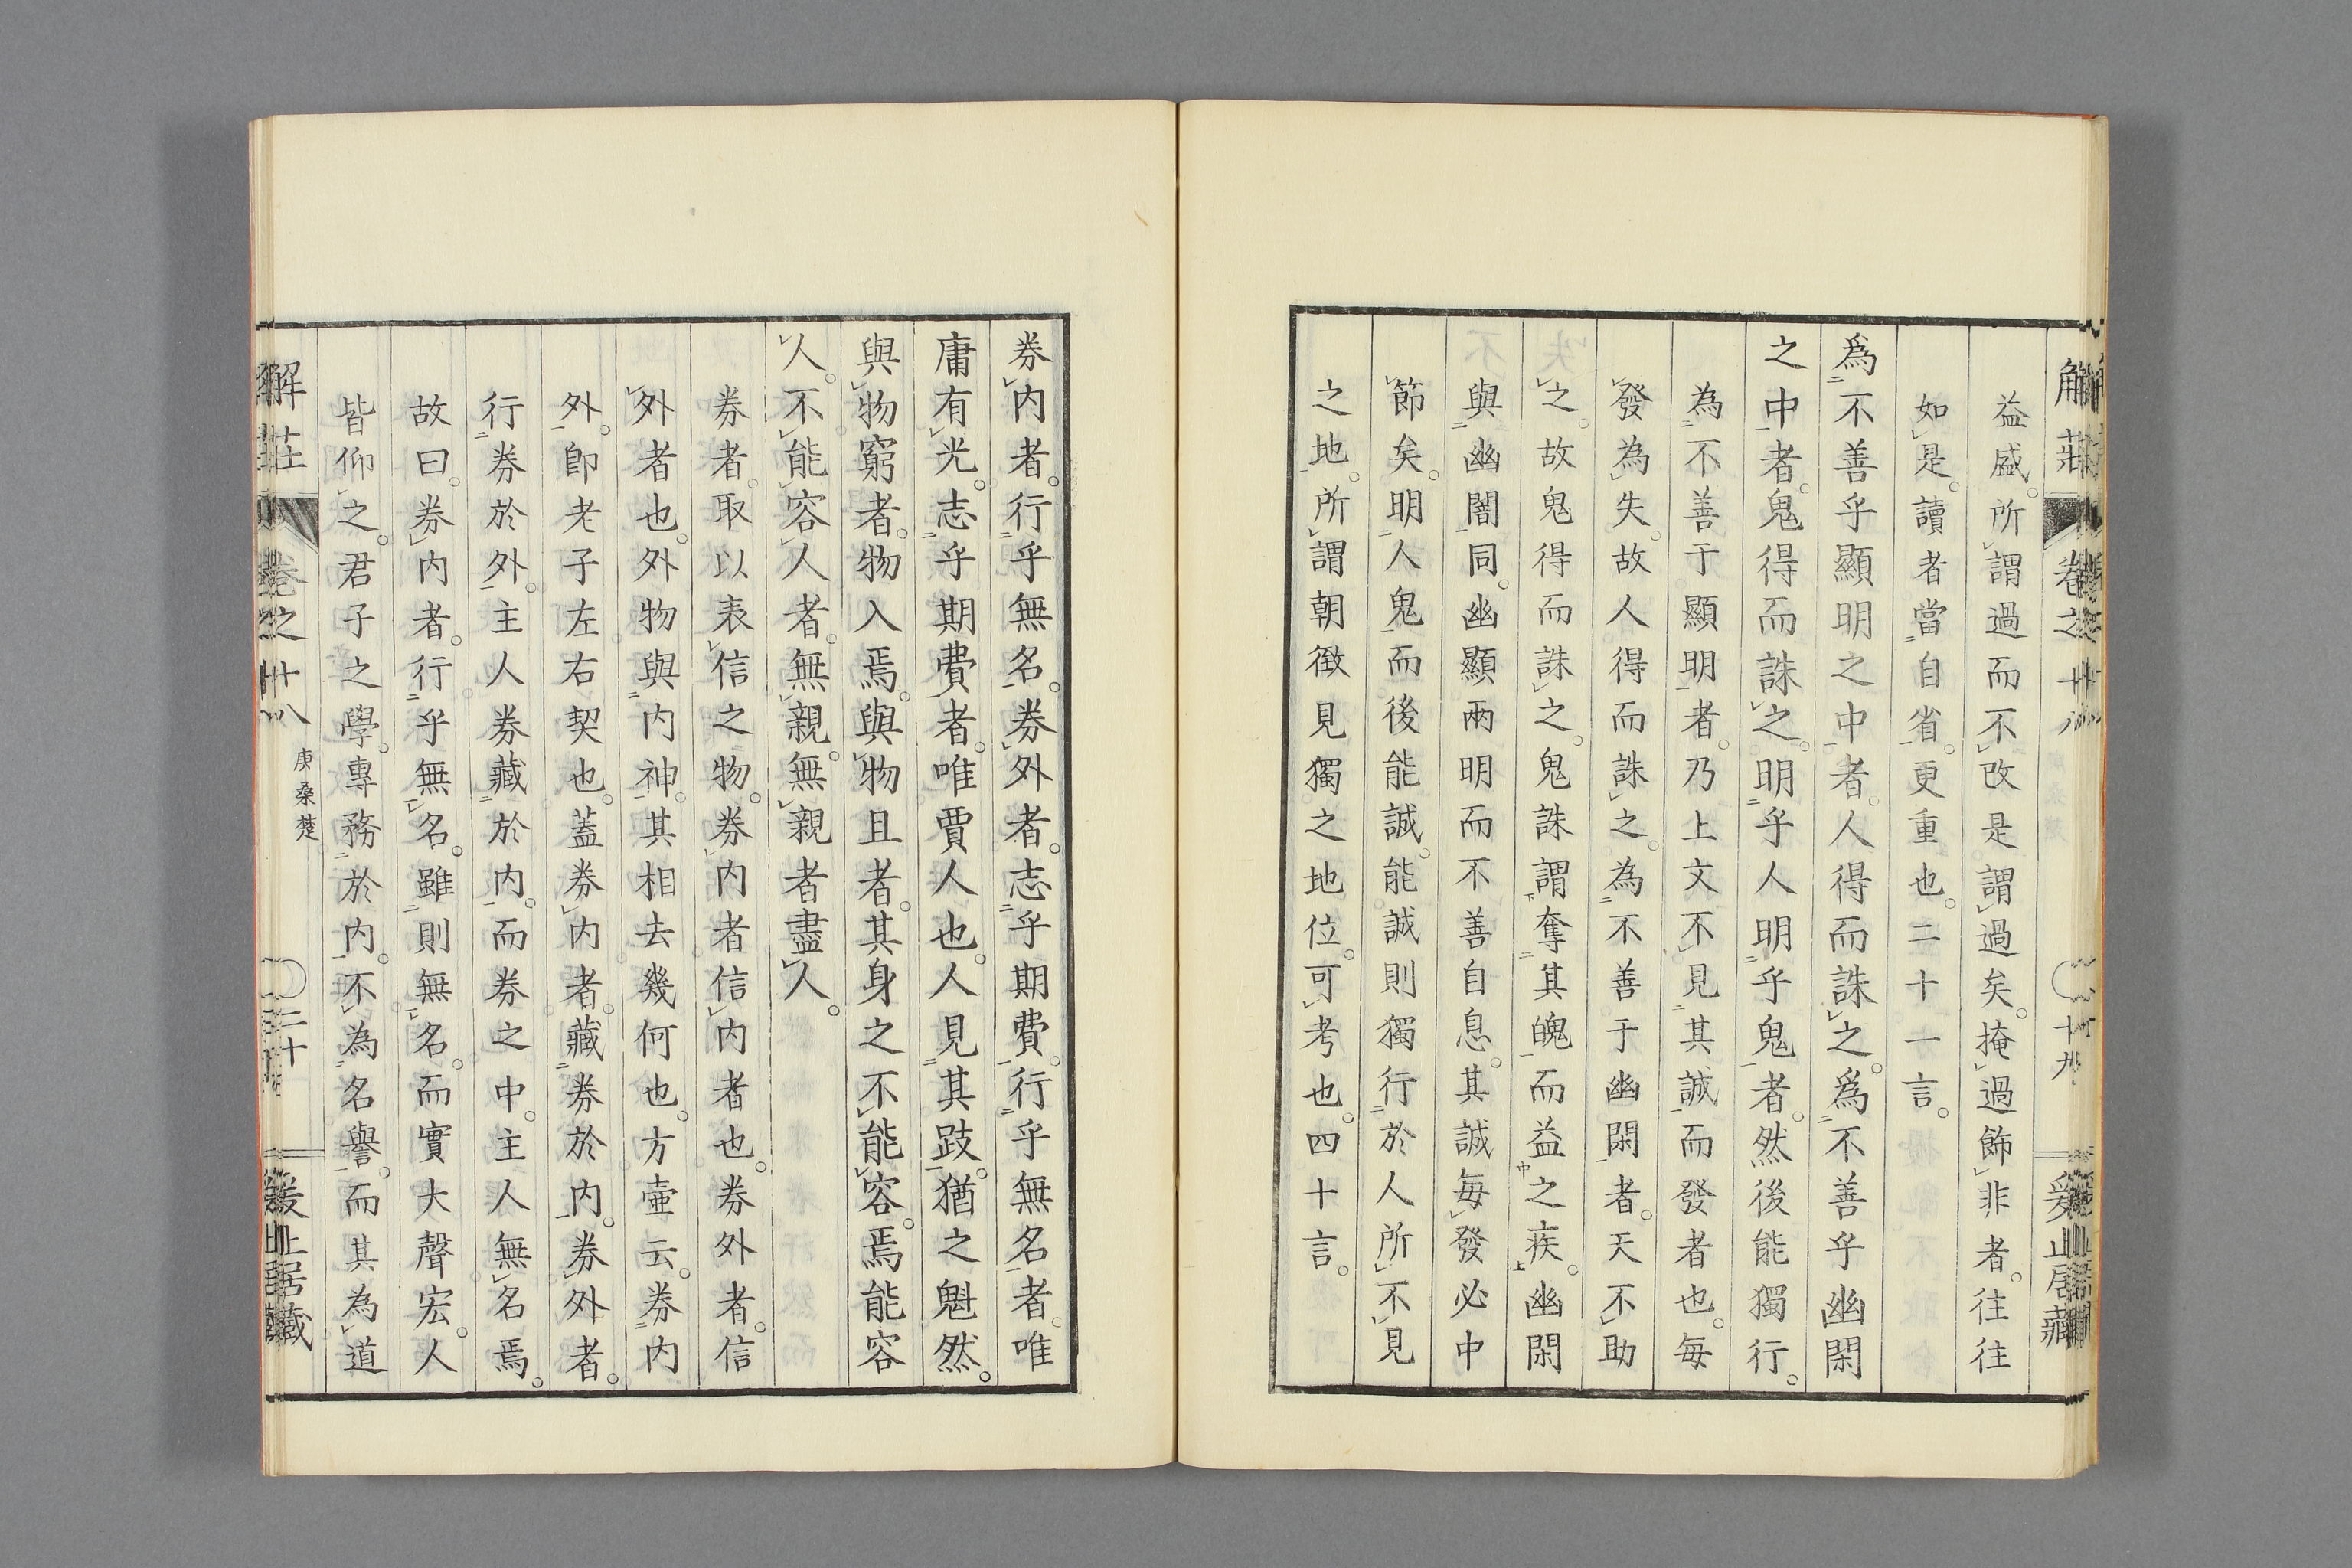 解莊 卷之十八 十九 爰止居藏
益盛。所謂過而不改是謂過矣。掩過飾非者。往往
如是。讀者當自省。更重也。二十一言。
爲不善乎顯明之中者。人得而誅之。爲不善乎幽閑
之中者。鬼得而誅之。明乎人明乎鬼者。然後能獨行。
為不善于顯明者。乃上文不見其誠而發者也。每
發為失。故人得而誅之。為不善于幽閑者。天不助
之。故鬼得而誅之。鬼誅謂奪其魄而益之疾。幽閑
與幽闇同。幽顯兩明而不善自息。其誠每發必中
節矣。明人鬼而後能誠。能誠則獨行於人所不見
之地。所謂朝徹見獨之地位。可考也。四十言。
券內者。行乎無名。券外者。志乎期費。行乎無名者。唯
庸有光。志乎期費者。唯賈人也。人見其跂。猶之魁然。
與物窮者。物入焉。與物且者。其身之不能容。焉能容
人。不能容人者。無親。無親者盡人。
券者。取以表信之物。券內者信內者也。券外者。信
外者也。外物與內神。其相去幾何也。方壷云。券內
外。卽老子左右契也。蓋券內者。藏券於內。券外者。
行券於外。主人券藏於內。而券之中。主人無名焉。
故曰。券內者。行乎無名。雖則無名。而實大聲宏。人
皆仰之。君子之學。專務於內。不為名譽。而其為道
解莊 卷之十八 庚桑楚 二十 爰止居藏